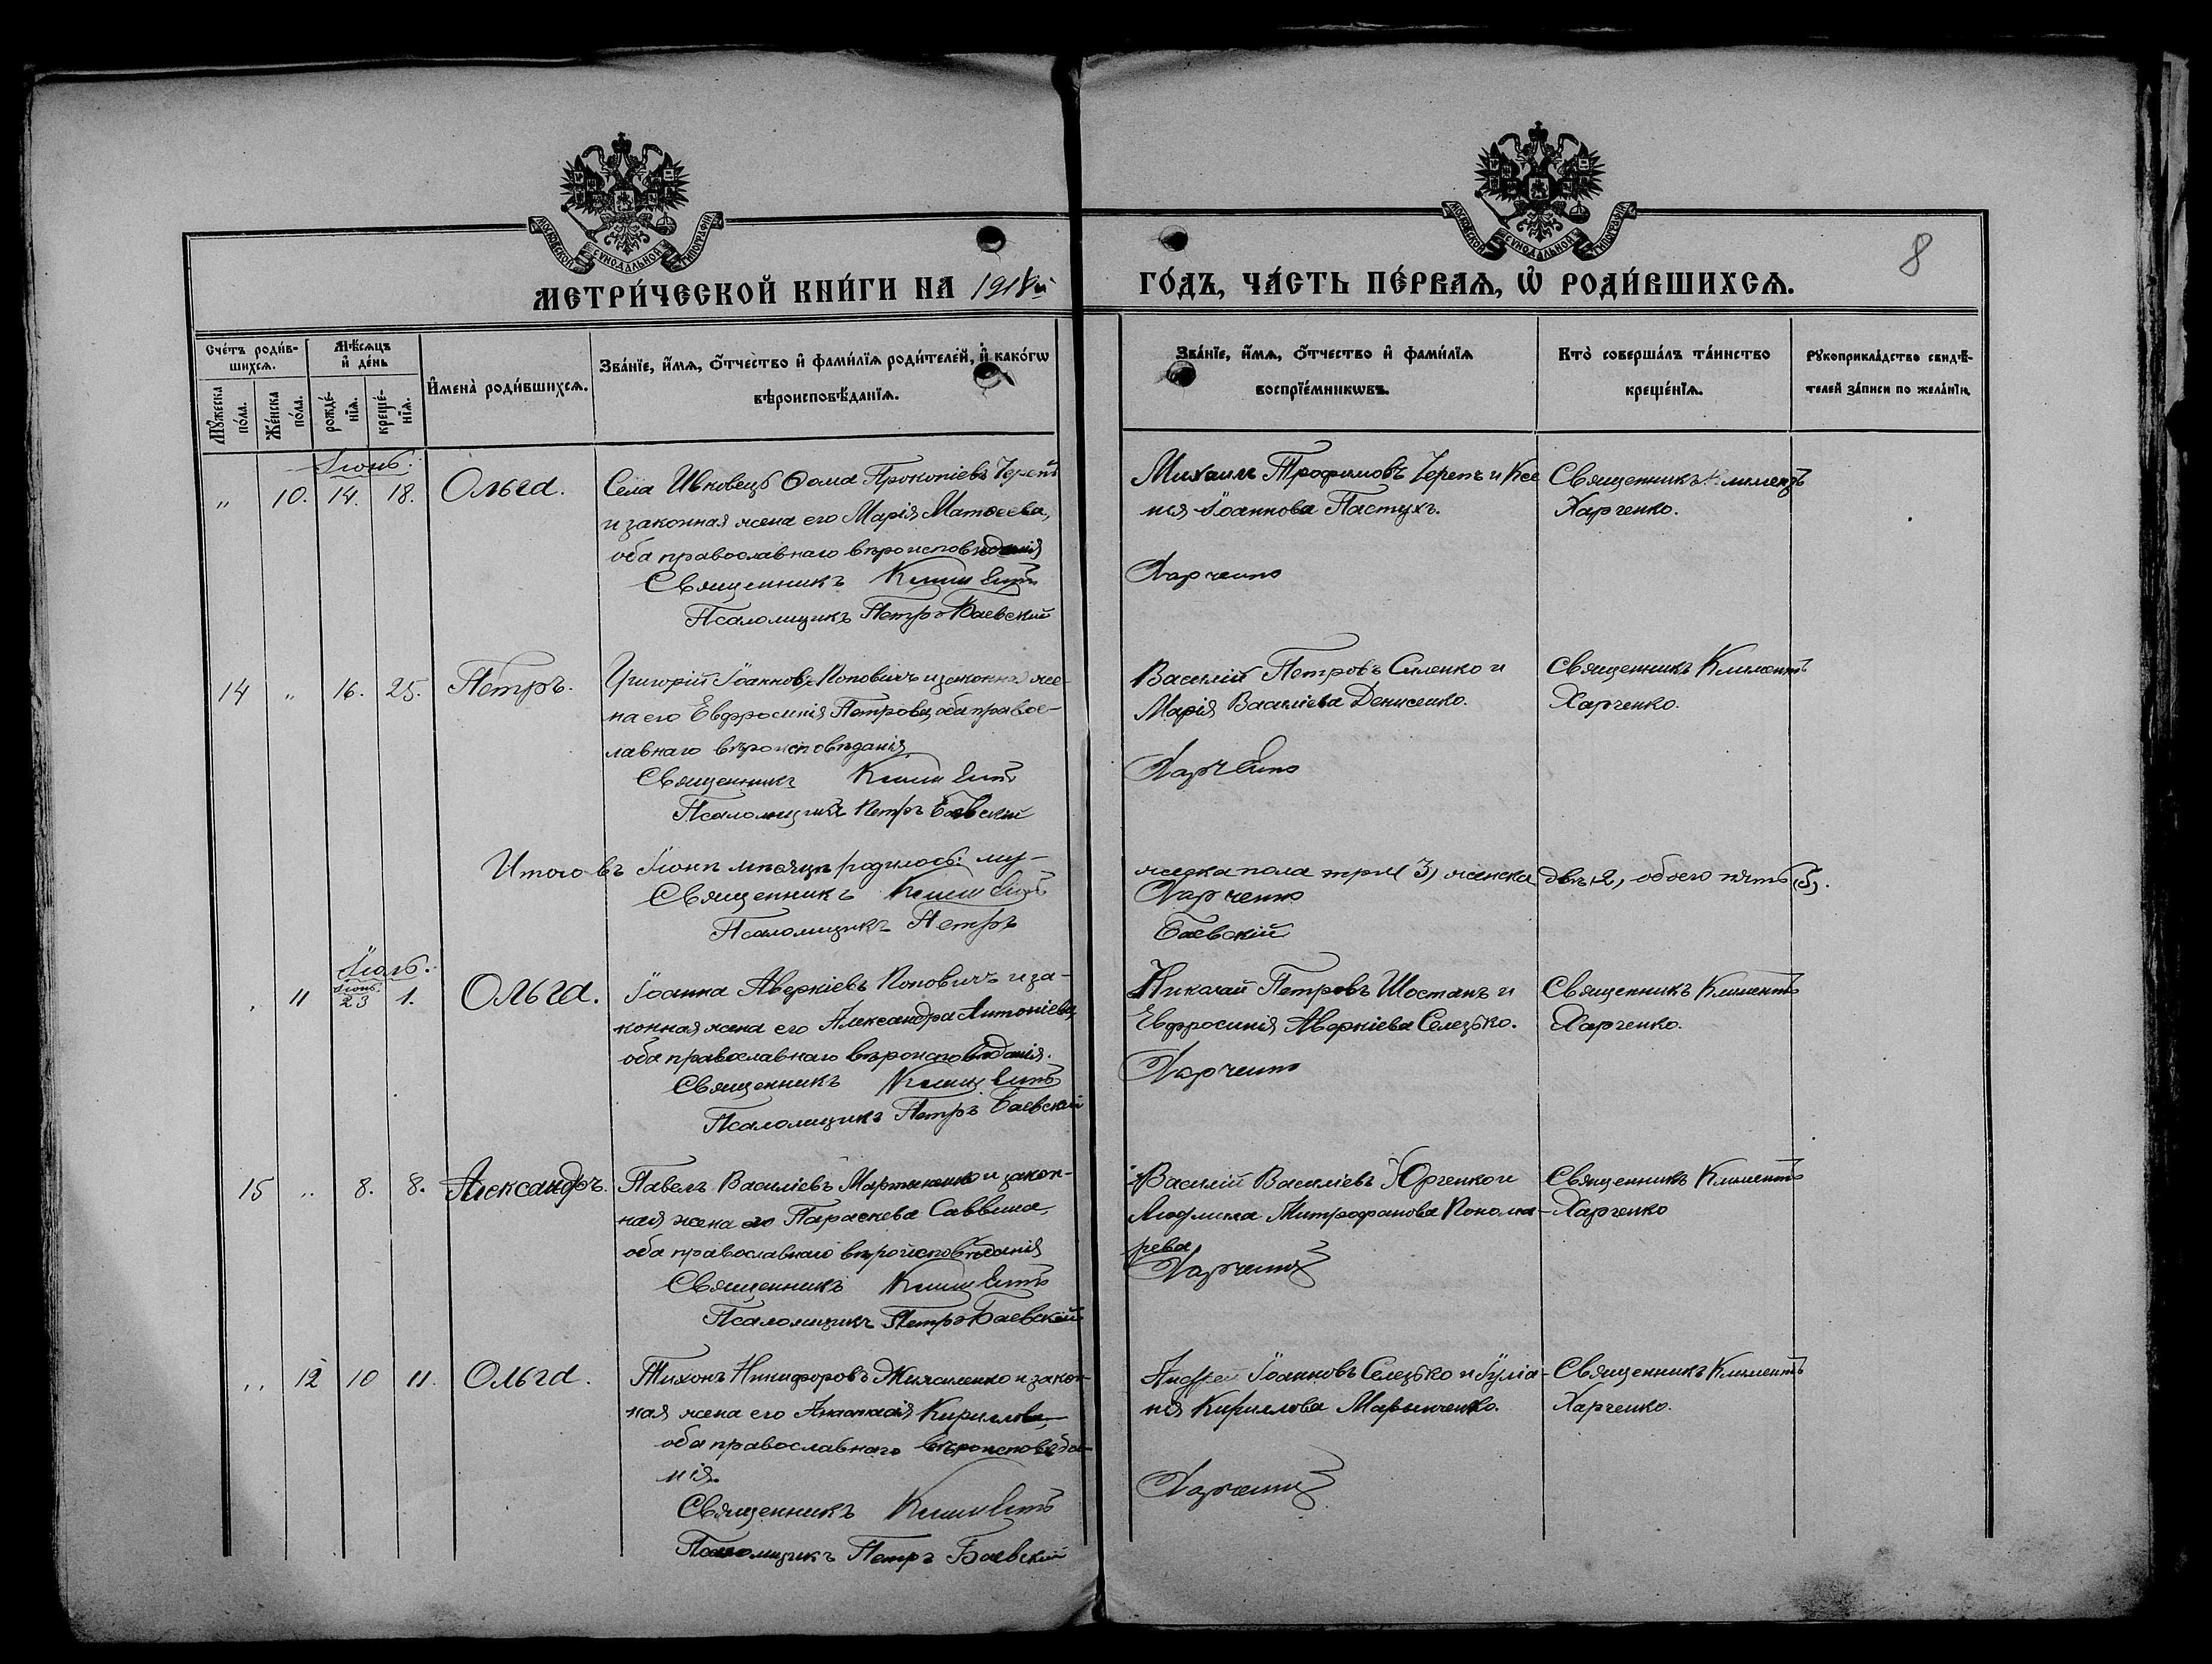 МОСКОВСКОЙ СѴНОДАЛЬНОЙ ТИПОГРАФІИ
МОСКОВСКОЙ СѴНОДАЛЬНОЙ ТИПОГРАФІИ
8
МЕТРИ́ЧЕСКОЙ КНИ́ГИ НА 1918й ГО́ДЪ, ЧА́СТЬ ПЕ́РВАѦ, Ѽ РОДИ́ВШИХСѦ.
Сче́тъ роди́в-
шихсѧ.
Мѣ́сѧцъ
и҆ де́нь
Мꙋ́жеска
по́ла.
Же́нска
по́ла.
рожде́-
нїѧ.
креще́-
нїѧ.
И҆мена̀ роди́вшихсѧ.
Зва́нїе, и҆́мѧ, ѻ҆́тчество и҆ фами́лїѧ роди́телей, и҆ како́гѡ
вѣроисповѣ́данїѧ.
Зва́нїе, и҆́мѧ, ѻ҆́тчество и҆ фами́лїѧ
воспрїе́мникѡвъ.
Кто̀ соверша́лъ та́инство
креще́нїѧ.
Рꙋкоприкла́дство свидѣ́-
телей за́писи по жела́нїю.
Іюнь.
" 10. 14. 18. Ольга.
Села Ивковецъ Ѳома Прокопіевъ Черепъ
и законная жена его Марія Матѳеева,
оба православнаго вѣроисповѣданія
Священникъ Климентъ
Псаломщикъ Петръ Баевскій
Михаилъ Трофимовъ Черепъ и Ксе
нія Іоаннова Пастухъ.
Харченко
Священникъ Климентъ
Харченко.
14 " 16. 25. Петръ.
Григорій Іоанновъ Поповичъ и законная же-
на его Евфросинія Петрова, оба право-
лавнаго вѣроисповѣданія
Священникъ Климентъ
Псаломщикъ Петръ Баевскій
Василій Петровъ Силенко и
Марія Василіева Денисенко.
Харченко
Священникъ Климентъ
Харченко.
Итого въ Іюнѣ мѣсяцѣ родилось: му-
жеска пола три (3), женска двѣ (2), обоего пять (5).
Священникъ Климентъ
Харченко
Псаломщикъ Петръ
Баевскій
Іюль.
11 Іюнь. 23 1. Ольга.
Іоанна Аверкіевъ Поповичъ и за-
конная жена его Александра Антоніева,
оба православнаго вѣроисповѣданія.
Священникъ Климентъ
Псаломщикъ Петръ Баевскій
Николай Петровъ Шостакъ и
Евфросинія Аверкіева Селезько.
Харченко
Священникъ Климентъ
Харченко.
15 " 8. 8. Александръ.
Павелъ Василіевъ Мартыненко и закон-
ная жена его Параскева Саввина,
оба православнаго вѣроисповѣданія
Священникъ Климентъ
Псаломщикъ Петръ Баевскій
Василій Василіевъ Юрченко и
Людмила Митрофанова Понома-
рева
Харченко
Священникъ Климентъ
Харченко
" 12 10 11. Ольга.
Тихонъ Никифоровъ и закон-
ная жена его Анастасія Кириллова,
оба православнаго вѣроисповѣда-
нія.
Священникъ Климентъ
Псаломщикъ Петръ Баевскій
Андрей Іоанновъ Селезько и Іуліа-
нія Кириллова Марынченко.
Харченко
Священникъ Климентъ
Харченко.